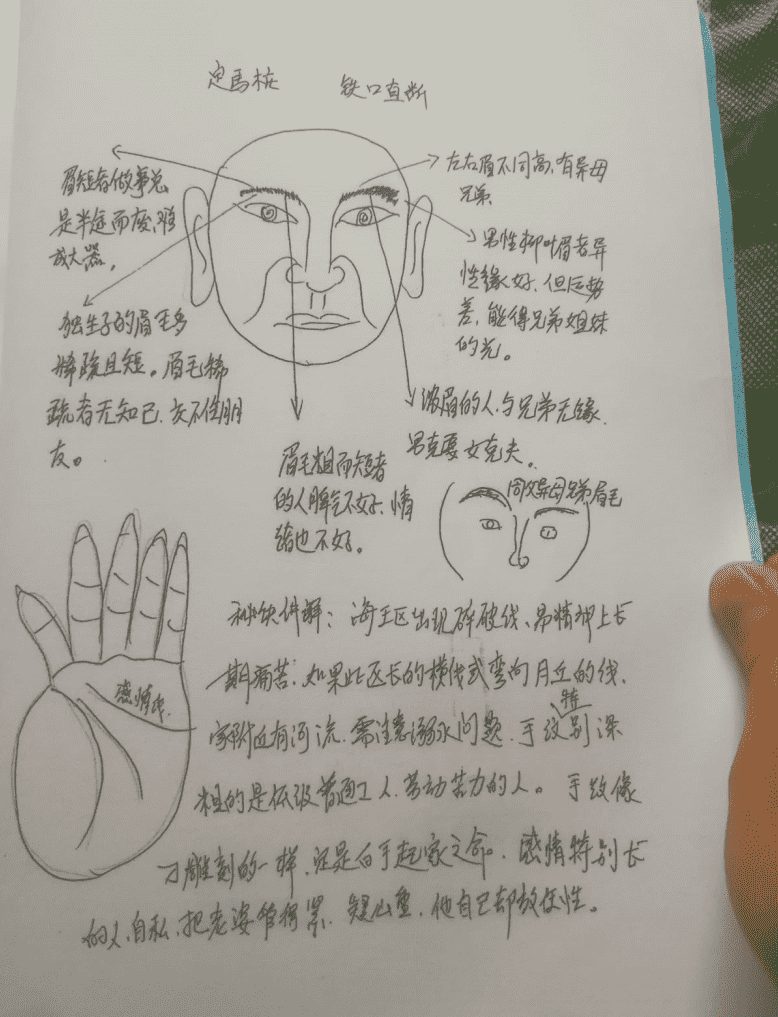 定馬桩 铁口直断
眉短者做事总
是半途而废,难
成大器,
独生子的眉毛多
稀疏且短。眉毛稀
疏者无知己,交不住朋
友。
左右眉不同高,有异母
兄弟
男性柳叶眉者异
性缘好,但后势
差,能得兄弟姐妹
的光。
浓眉的人,与兄弟无缘,
男克妻女克夫。
眉毛粗而短者
的人脾气不好,情
绪也不好。
同父异母兄弟眉毛
感情线
秘诀讲解:海王区出现碎破线、易精神上长
期痛苦,如果此区长的横线或弯向月丘的线,
家附近有河流,需注意溺水问题,手纹特别深
粗的是低级普通工人,劳动苦力的人。手纹像
刀雕刻的一样,定是白手起家之命。感情特别长
的人,自私,把老婆管得紧,疑心重,他自己却放任性。